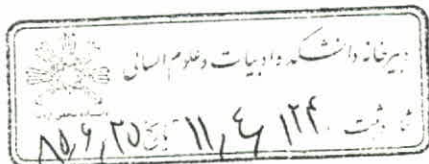 دبیرخانه دانشکده ادبیات و علوم انسانی
شماره ثبت ۱۱٫۴٫۱۲۴ تاریخ ۸۵٫۶٫۲۵